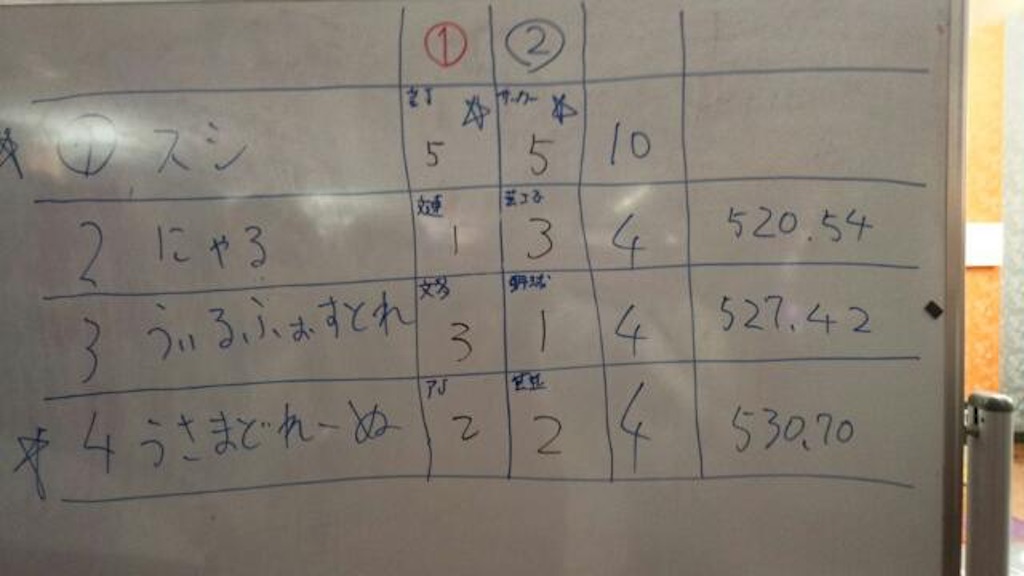 ① ②
① スシ 5 5 10
2 にゃる 1 3 4 520.54
3 うぃるふぉすとれ 文多 3 野球 1 4 527.42
4 うさまどれーぬ 2 2 4 530.70